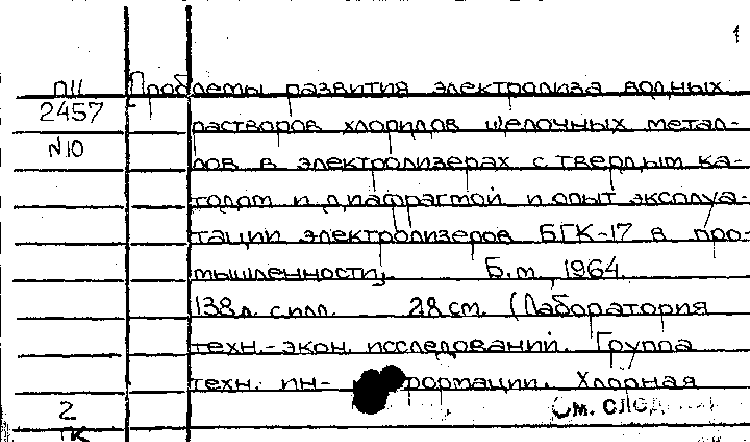 1
П11 Проблемы развития электролиза водных
2457 растворов хлоридов щелочных метал-
N10 лов в электролизерах с твердым ка-
тодом и диафрагмой и опыт эксплуа-
тации электролизеров БГК-17 в про-
мышленности. Б.м., 1964.
138л. с илл. 28см. (Лаборатория
техн.-экон. исследований. Группа
техн. ин- формации. Хлорная
2 См. след.
ГК